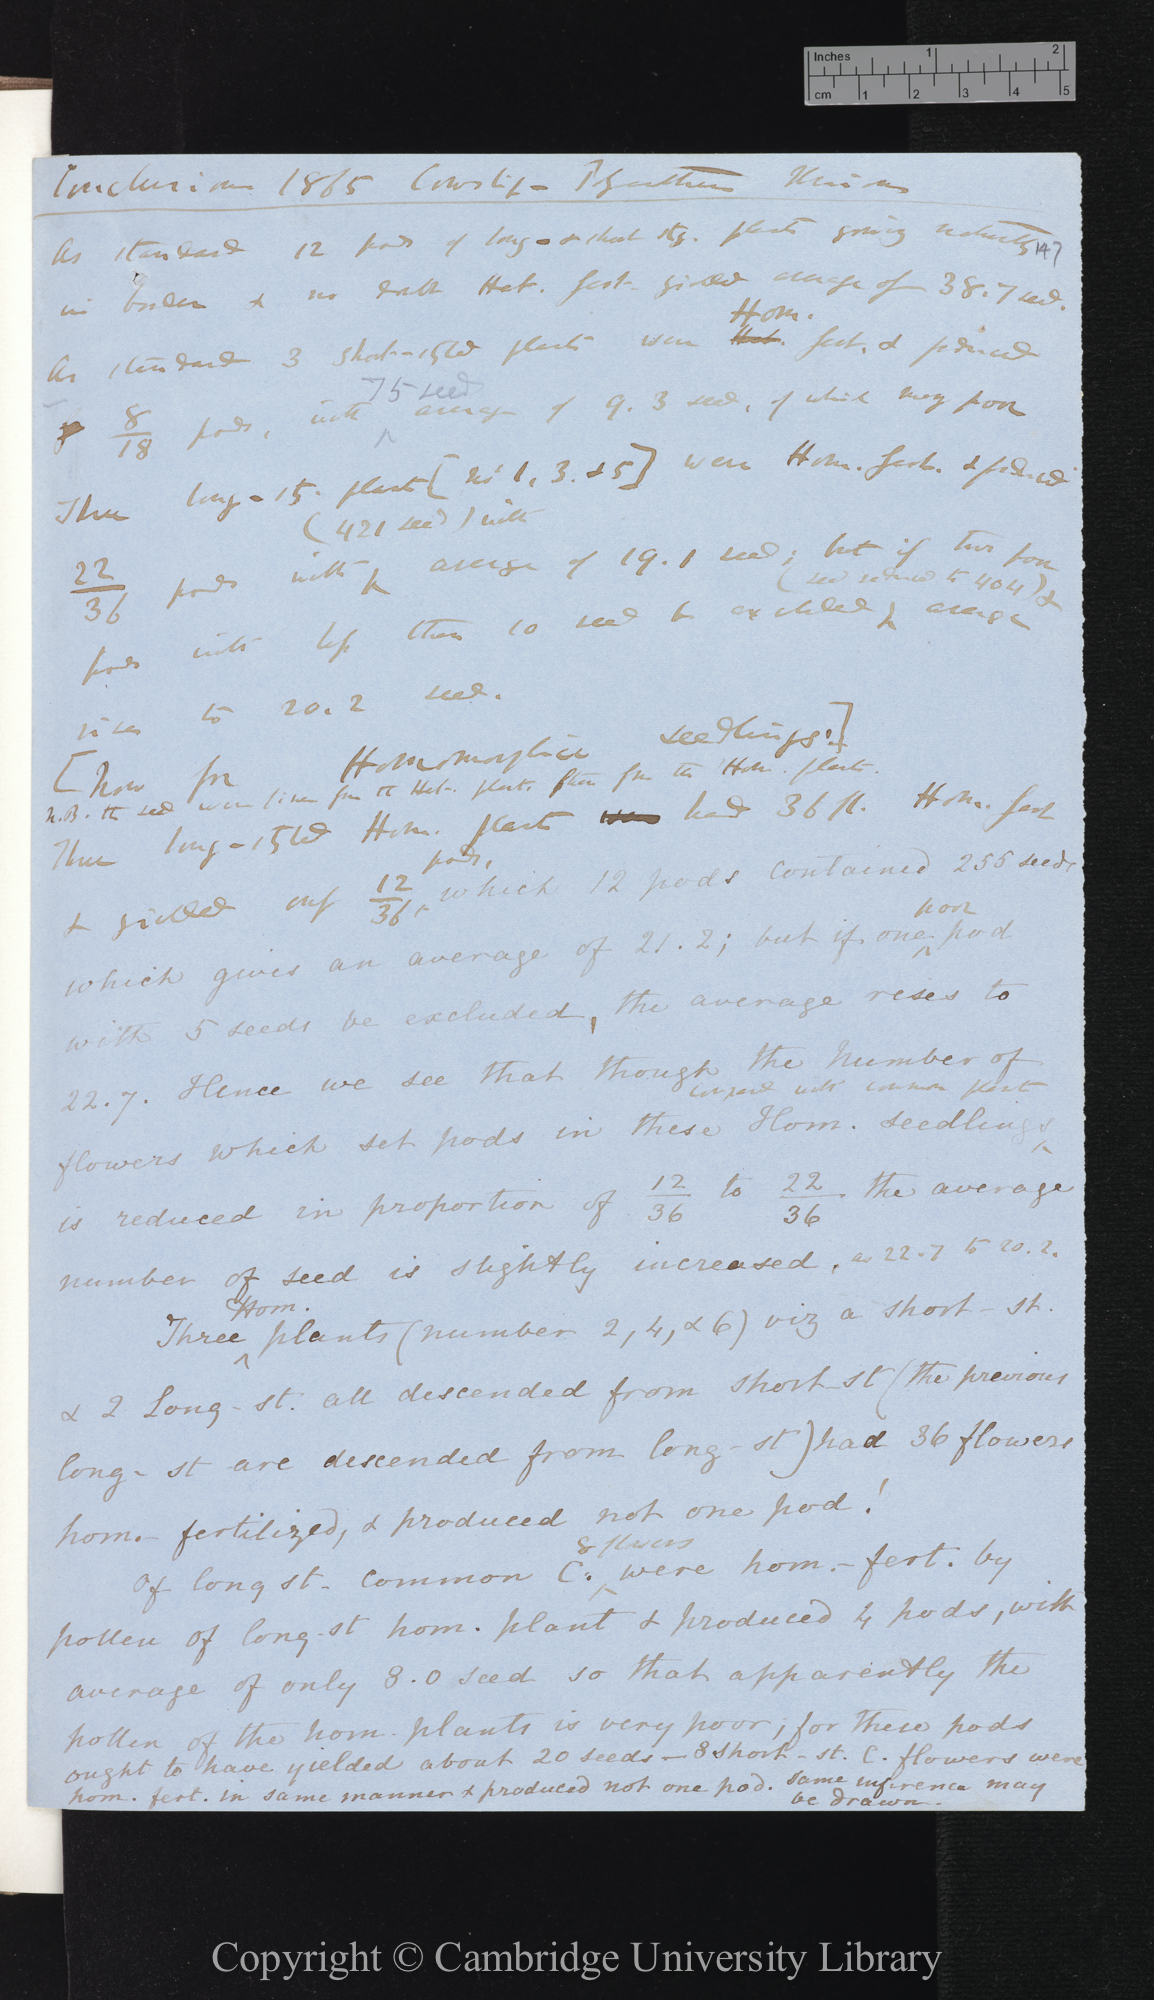 Inches 1 2
cm 1 2 3 4 5
Conclusions 1865 Cowslip-
147
As standard 12 pods of long- & short sty. plants growing naturally
in & no doubt Het. fert. yielded average of 38.7 seed.
Hom.
As standard 3 short-styled plants were Het. fert. & produced
75 seed
8/18 pods, with average of 9.3 seed, of which many poor
Three long-st. plants [no 1, 3. & 5] were Hom. fert. & produced
(421 seed) with
22/36 pods with average of 19.1 seed; but if two poor
(seed reduced to 404) &
pods with less than 10 seed be excluded average
rises to 20.2 seed.
[Now for Homomorphic seedlings.]
N.B. the seed were finer from the Het. plants than from the Hom. plants.
Three long-styled Hom. plants were had 36 fl. Hom. fert
pods,
& yielded only 12/36, which 12 pods contained 255 seeds
poor
which gives an average of 21.2; but if one pod
with 5 seeds be excluded, the average rises to
22.7. Hence we see that though the number of
compared with common plants
flowers which set pods in these Hom. seedlings
is reduced in proportion of 12/36 to 22/36 the average
number of seed is slightly increased, as 22.7 to 20.2.
Hom.
Three plants (number 2, 4, & 6) viz a short-st.
& 2 Long-st. all descended from short-st (the previous
long-st are descended from long-st) had 36 flowers
hom.- fertilized, & produced not one pod!
8 flowers
Of long st- common C. were hom.- fert. by
pollen of long-st hom. plant & produced 4 pods, with
average of only 8.0 seed so that apparently the
pollen of the hom. plants is very poor; for these pods
ought to have yielded about 20 seeds — 8 short-st. C. flowers were
hom. fert. in same manner & produced not one pod. Same inference may
be drawn.
Copyright © Cambridge University Library